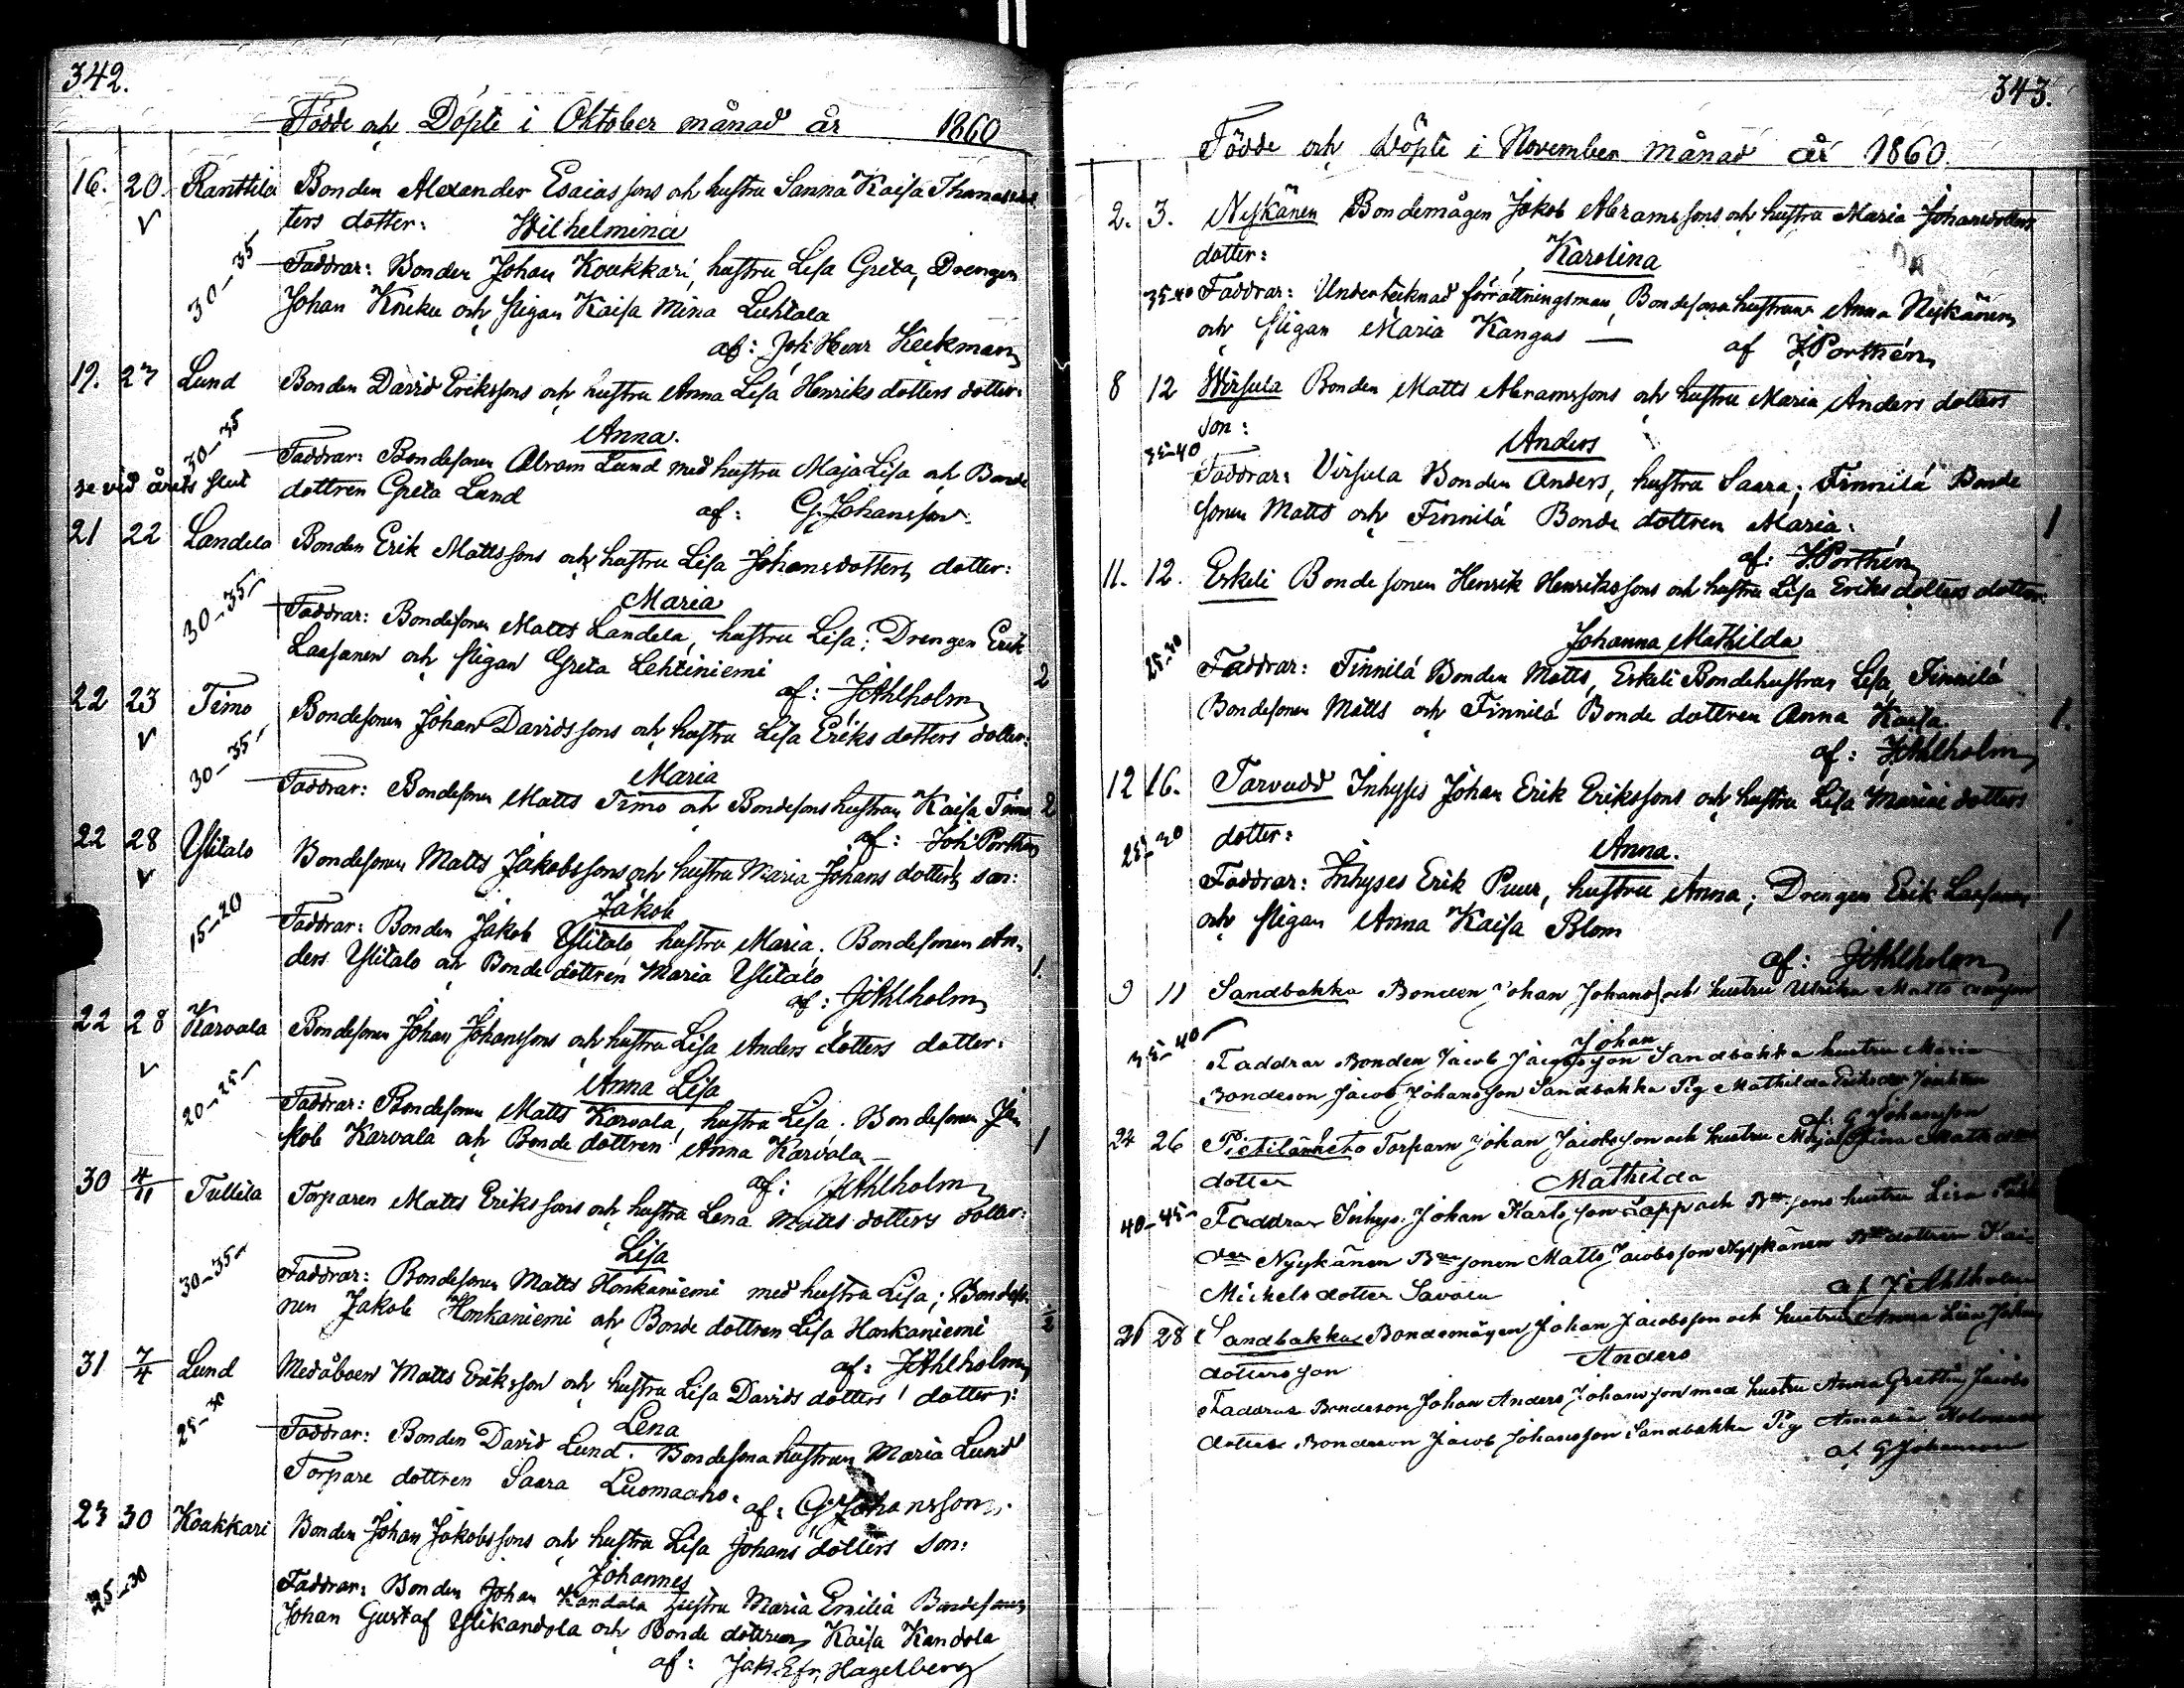 342.
Födde och Döpte i Oktober månad år 1860
16. 20. Ranttila Bonden Alexander Esaiassons och hustru Sanna Kaisa
ters dotter: Wilhelmina
30–35 Faddrar: Bonden Johan Koukkari, hustru Lisa Greta, Drengen
Johan och pigan Kaisa Mina Luhtala
af: Joh Henr Heikman
19. 27 Lund Bonden David Erikssons och hustru Anna Lisa Henriks dotters dotter:
Anna.
30–35 Faddrar: Bondesonen Abram Lund med hustru Maja Lisa och Bonde
se vid årets slut dottren Greta Lund
af: G. Johansson
21 22 Landela Bonden Erik Mattssons och hustru Lisa Johansdotters dotter:
Maria
30–35 Faddrar: Bondesonen Matts Landela, hustru Lisa; Drengen Erik
Laasanen och pigan Greta Lehtiniemi 2
af: J Ahlholm
22 23 Timo Bondesonen Johan Davidssons och hustru Lisa Eriks dotters dotter:
Maria
30–35 Faddrar: Bondesonen Matts Timo och Bondesons hustrun Kaisa Timo 2
af: Joh Porthen
22 28 Ylitalo Bondesonen Matts Jakobssons och hustru Maria Johans dotters son:
Jakob
15–20 Faddrar: Bonden Jakob Ylitalo hustru Maria. Bondesonen An-
ders Ylitalo och Bonde dottren Maria Ylitalo 1.
af: J Ahlholm
22 28 Karvala Bondesonen Johan Johanssons och hustru Lisa Anders dotters dotter:
Anna Lisa
20–25 Faddrar: Bondesonen Matts Karvala, hustru Lisa. Bondesonen Ja
kob Karvala och Bonde dottren Anna Karvala 1
af: J Ahlholm
30 4/11 Tullila Torparen Matts Erikssons och hustru Lena Matts dotters dotter:
Lisa
30–35 Faddrar: Bondesonen Matts Honkaniemi med hustru Lisa; Bondeso
nen Jakob Honkaniemi och Bonde dottren Lisa Honkaniemi 2
af: J Ahlholm
31 7/4 Lund Medåboen Matts Eriksson och hustru Lisa Davids dotters dotter:
Lena
25–30 Faddrar: Bonden David Lund. Bondesona hustrun Maria Lund
Torpare dottren Saara Luomaaho.
af: G. Johansson.
23 30 Koukkari Bonden Johan Jakobssons och hustru Lisa Johans dotters son:
Johannes
25–30 Faddrar: Bonden Johan Kandola hustru Maria Emilia Bondesonen
Johan Gustaf Ylikandola och Bonde dottren Kaisa Kandola
af: Jak. Efr. Hagelberg
343.
Födde och Döpte i November månad år 1860.
2. 3. Nykänen Bondemågen Jakob Abramssons och hustru Maria Johansdotters
dotter: Karolina
35–40 Faddrar: Undertecknad förrättningsman, Bondesona hustrun Anna Nykänen
och pigan Maria Kangas — af J. Porthén
8 12 Wirsula Bonden Matts Abramssons och hustru Maria Anders dotters
son: Anders
35–40 Faddrar: Virsula Bonden Anders, hustru Saara; Finnilä Bonde
sonen Matts och Finnilä Bonde dottren Maria. 1
af: J. Porthén
11. 12. Erkeli Bonde sonen Henrik Henrikssons och hustru Lisa Eriks dotters dotter.
Johanna Mathilda
25–30 Faddrar: Finnilä Bonden Matts, Erkeli Bondehustrun Lisa, Finnilä
Bondesonen Matts och Finnilä Bonde dottren Anna Kaisa. 1.
af: J Ahlholm
12 16. Tarvudd Inhyses Johan Erik Erikssons och hustru Lisa Mariæ dotters
25–30 dotter: Anna.
Faddrar: Inhyses Erik Puur, hustru Anna; Drengen Erik Laasanen
och pigan Anna Kaisa Blom 1
af: J Ahlholm
9 11 Sandbakka Bonden Johan Johans och hustru Ulrika Matts
Johan
35–40 Faddrar Bonden Jacob Jacobsson Sandbakka hustru Maria
Bondeson Jacob Johansson Sandbakka Pig Mathilda
af: G Johansson
24 26 Torparn Johan Jacobsson och hustru Maja Stina Matts
dotter Mathilda
40–45 Faddrar Inhys. Johan Karlsson Lapp och Bdesons hustru Lisa
Nyykänen Bdesonen Matts Jacobsson Nyykänen Bdedottren
Mickels dotter Savola
af J Ahlholm
21 28 Sandbakka Bondemågen Johan Jacobsson och hustru Anna Lisa Johans
dotters son Anders
Faddrar Bondeson Johan Anders Johansson med hustru Anna Jacobs
dotter Bondeson Jacob Johansson Sandbakka Pig Amalia
af G Johansson